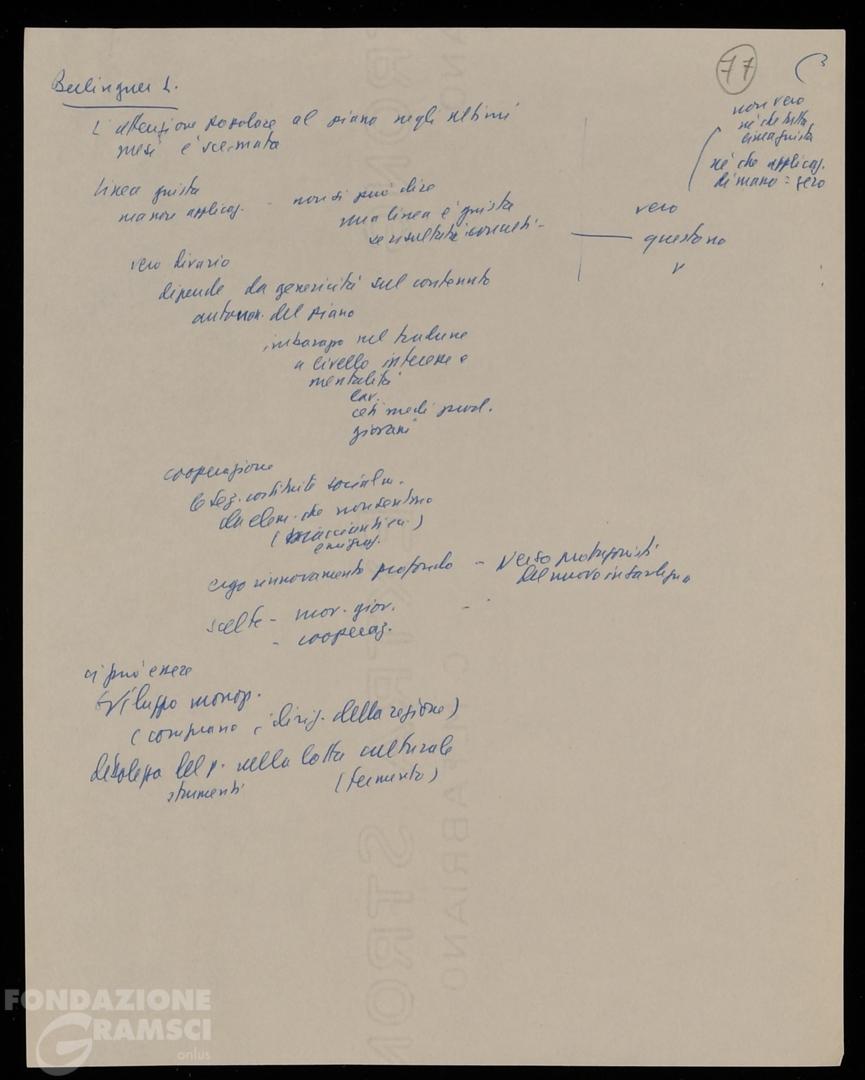 77
Berlinguer L.
L'attenzione popolare al piano negli ultimi
mesi è scemata
non vero
né che tutta
linea giusta
né che applicaz.
di mano = zero
linea giusta
ma non applicaz. - non si può dire
una linea è giusta
se risultati
vero
questo no
vero divario
dipende da genericità sul contenuto
autonom. del piano
imbarazzo nel tradurre
a livello interessi e
mentalità
lav.
ceti medi prod.
giovani
cooperazione
le sez. costituite socialm.
da elem. che non sentono
(bracciantica)
emigraz.
ergo rinnovamento profondo - verso protagonisti
del nuovo in Sardegna
scelte - mov. giov.
- cooperaz.
ci può essere
sviluppo monop.
(comprano i dirig. della regione)
debolezza del p. nella lotta culturale
strumenti (fermento)
FABRIANO
STRONG
FONDAZIONE
GRAMSCI
onlus